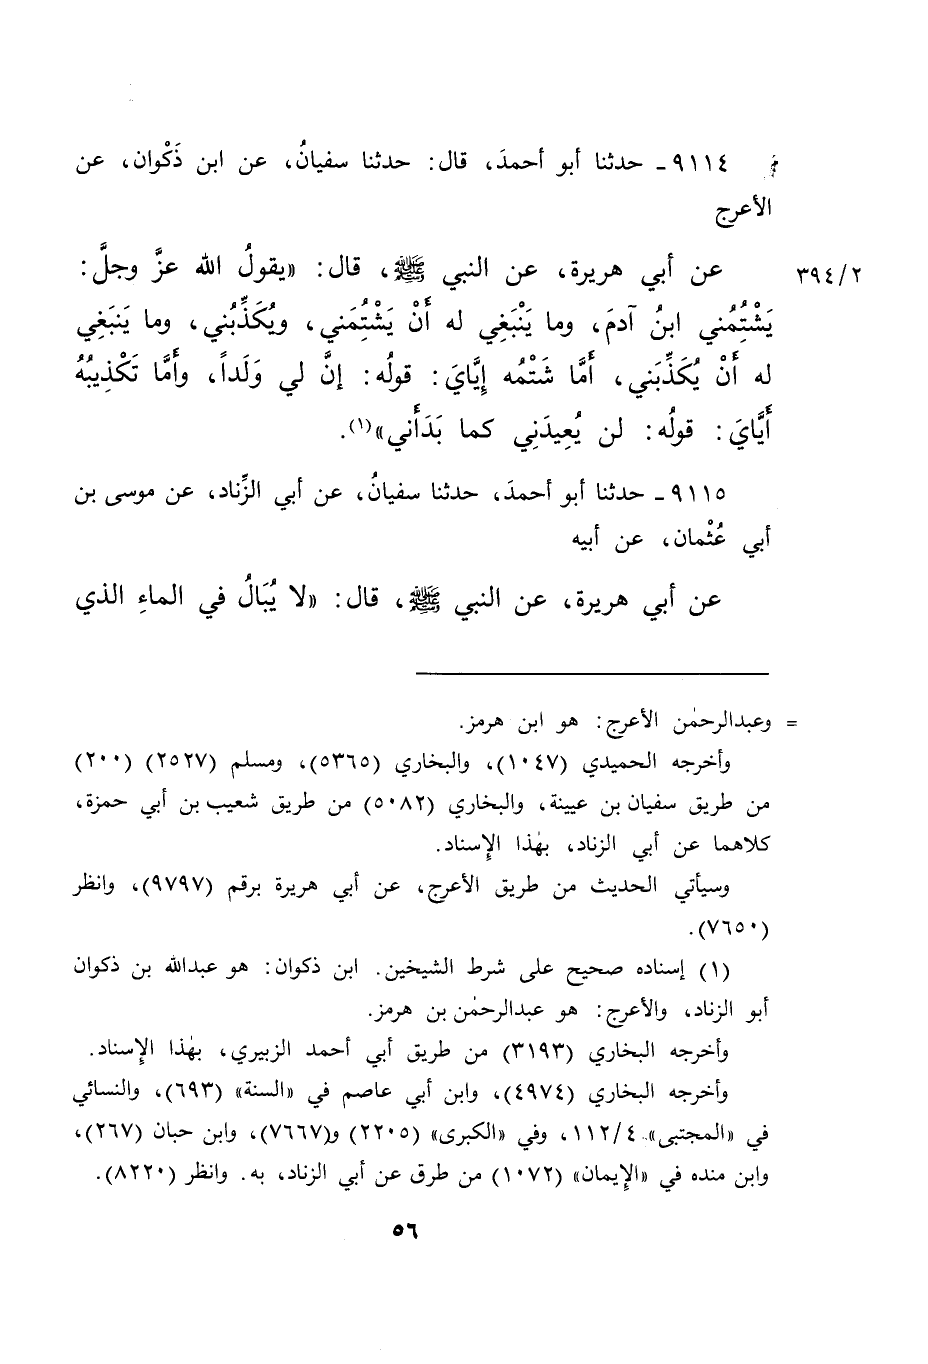 ٩١١٤ـ حدثنا أبو أحمدَ، قال: حدثنا سفيانُ، عن ابن ذَكْوان، عن
الأعرج
٣٩٤/٢ عن أبي هريرة، عن النبي ﷺ، قال: «يقولُ الله عزَّ وجلَّ:
يَشْتُمُني ابنُ آدمَ، وما يَنْبَغِي له أَنْ يَشْتِمَني، ويُكَذِّبُني، وما يَنبَغِي
له أَنْ يُكَذِّبَني، أَمَّا شَتْمُه إِيَّايَ: قولُه: إنَّ لي وَلَداً، وأَمَّا تَكْذِيبُهُ
أَيَّايَ: قولُه: لن يُعِيدَنِي كما بَدَأَني»(١).
٩١١٥ـ حدثنا أبو أحمدَ، حدثنا سفيانُ، عن أبي الزِّناد، عن موسى بن
أبي عُثْمان، عن أبيه
عن أبي هريرة، عن النبي ﷺ، قال: «لا يُبَالُ في الماءِ الذي
= وعبدالرحمٰن الأعرج: هو ابن هرمز.
وأخرجه الحميدي (١٠٤٧)، والبخاري (٥٣٦٥)، ومسلم (٢٥٢٧) (٢٠٠)
من طريق سفيان بن عيينة، والبخاري (٥٠٨٢) من طريق شعيب بن أبي حمزة،
كلاهما عن أبي الزناد، بهٰذا الإسناد.
وسيأتي الحديث من طريق الأعرج، عن أبي هريرة برقم (٩٧٩٧)، وانظر
(٧٦٥٠).
(١) إسناده صحيح على شرط الشيخين. ابن ذكوان: هو عبدالله بن ذكوان
أبو الزناد، والأعرج: هو عبدالرحمٰن بن هرمز.
وأخرجه البخاري (٣١٩٣) من طريق أبي أحمد الزبيري، بهٰذا الإسناد.
وأخرجه البخاري (٤٩٧٤)، وابن أبي عاصم في «السنة» (٦٩٣)، والنسائي
في «المجتبى» ١١٢/٤، وفي «الكبرى» (٢٢٠٥) و(٧٦٦٧)، وابن حبان (٢٦٧)،
وابن منده في «الإيمان» (١٠٧٢) من طرق عن أبي الزناد، به. وانظر (٨٢٢٠).
٥٦